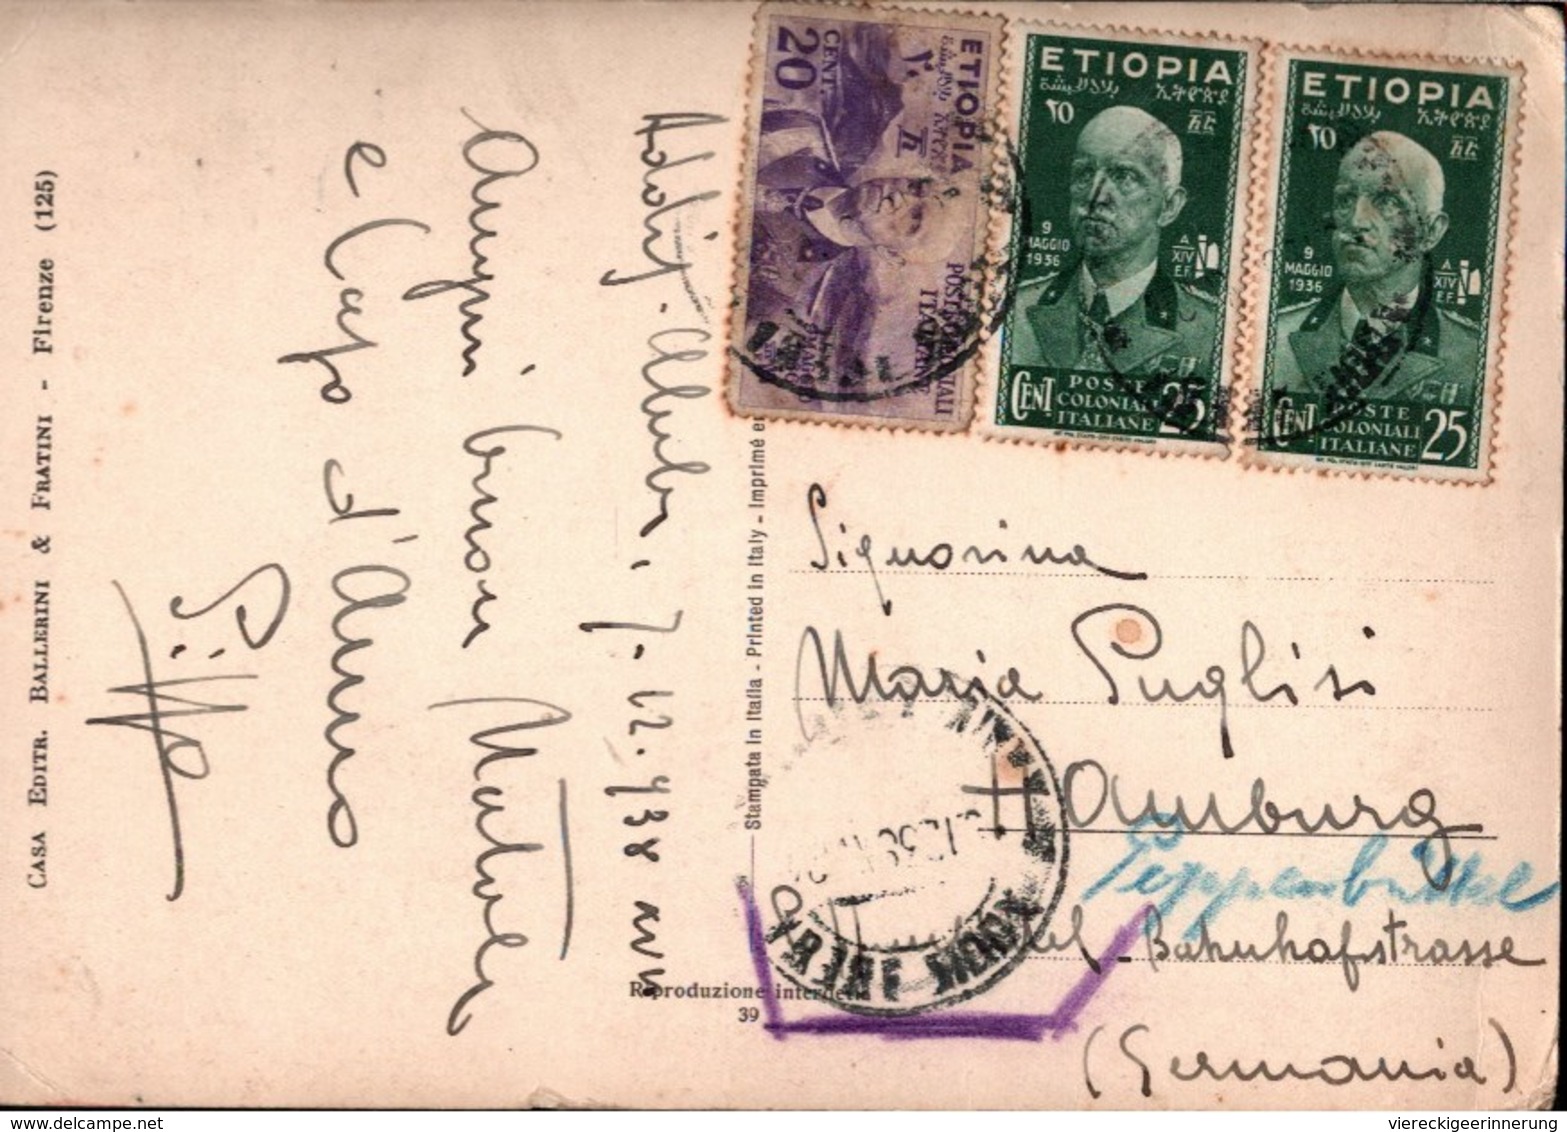 CASA EDITR. BALLERINI & FRATINI - Firenze (125)
Addis Abeba, 7.12.938 XVII
Auguri buon Natale
e Capo d'Anno
Pippo
Stampata in Italia - Printed in Italy - Imprimé en
Riproduzione interdetta
39
ETIOPIA
20
CENT.
POSTE COLONIALI
ITALIANE
ETIOPIA
ኢትዮጵያ
٢٥
9
MAGGIO
1936
A
XIV
E.F.
CENT
POSTE
COLONIALI
ITALIANE
25
ETIOPIA
ኢትዮጵያ
٢٥
9
MAGGIO
1936
A
XIV
E.F.
CENT
POSTE
COLONIALI
ITALIANE
25
Signorina
Maria Puglisi
Hamburg
Poppenbüttel
Bahnhofstrasse
(Germania)
viereckigeerinnerung